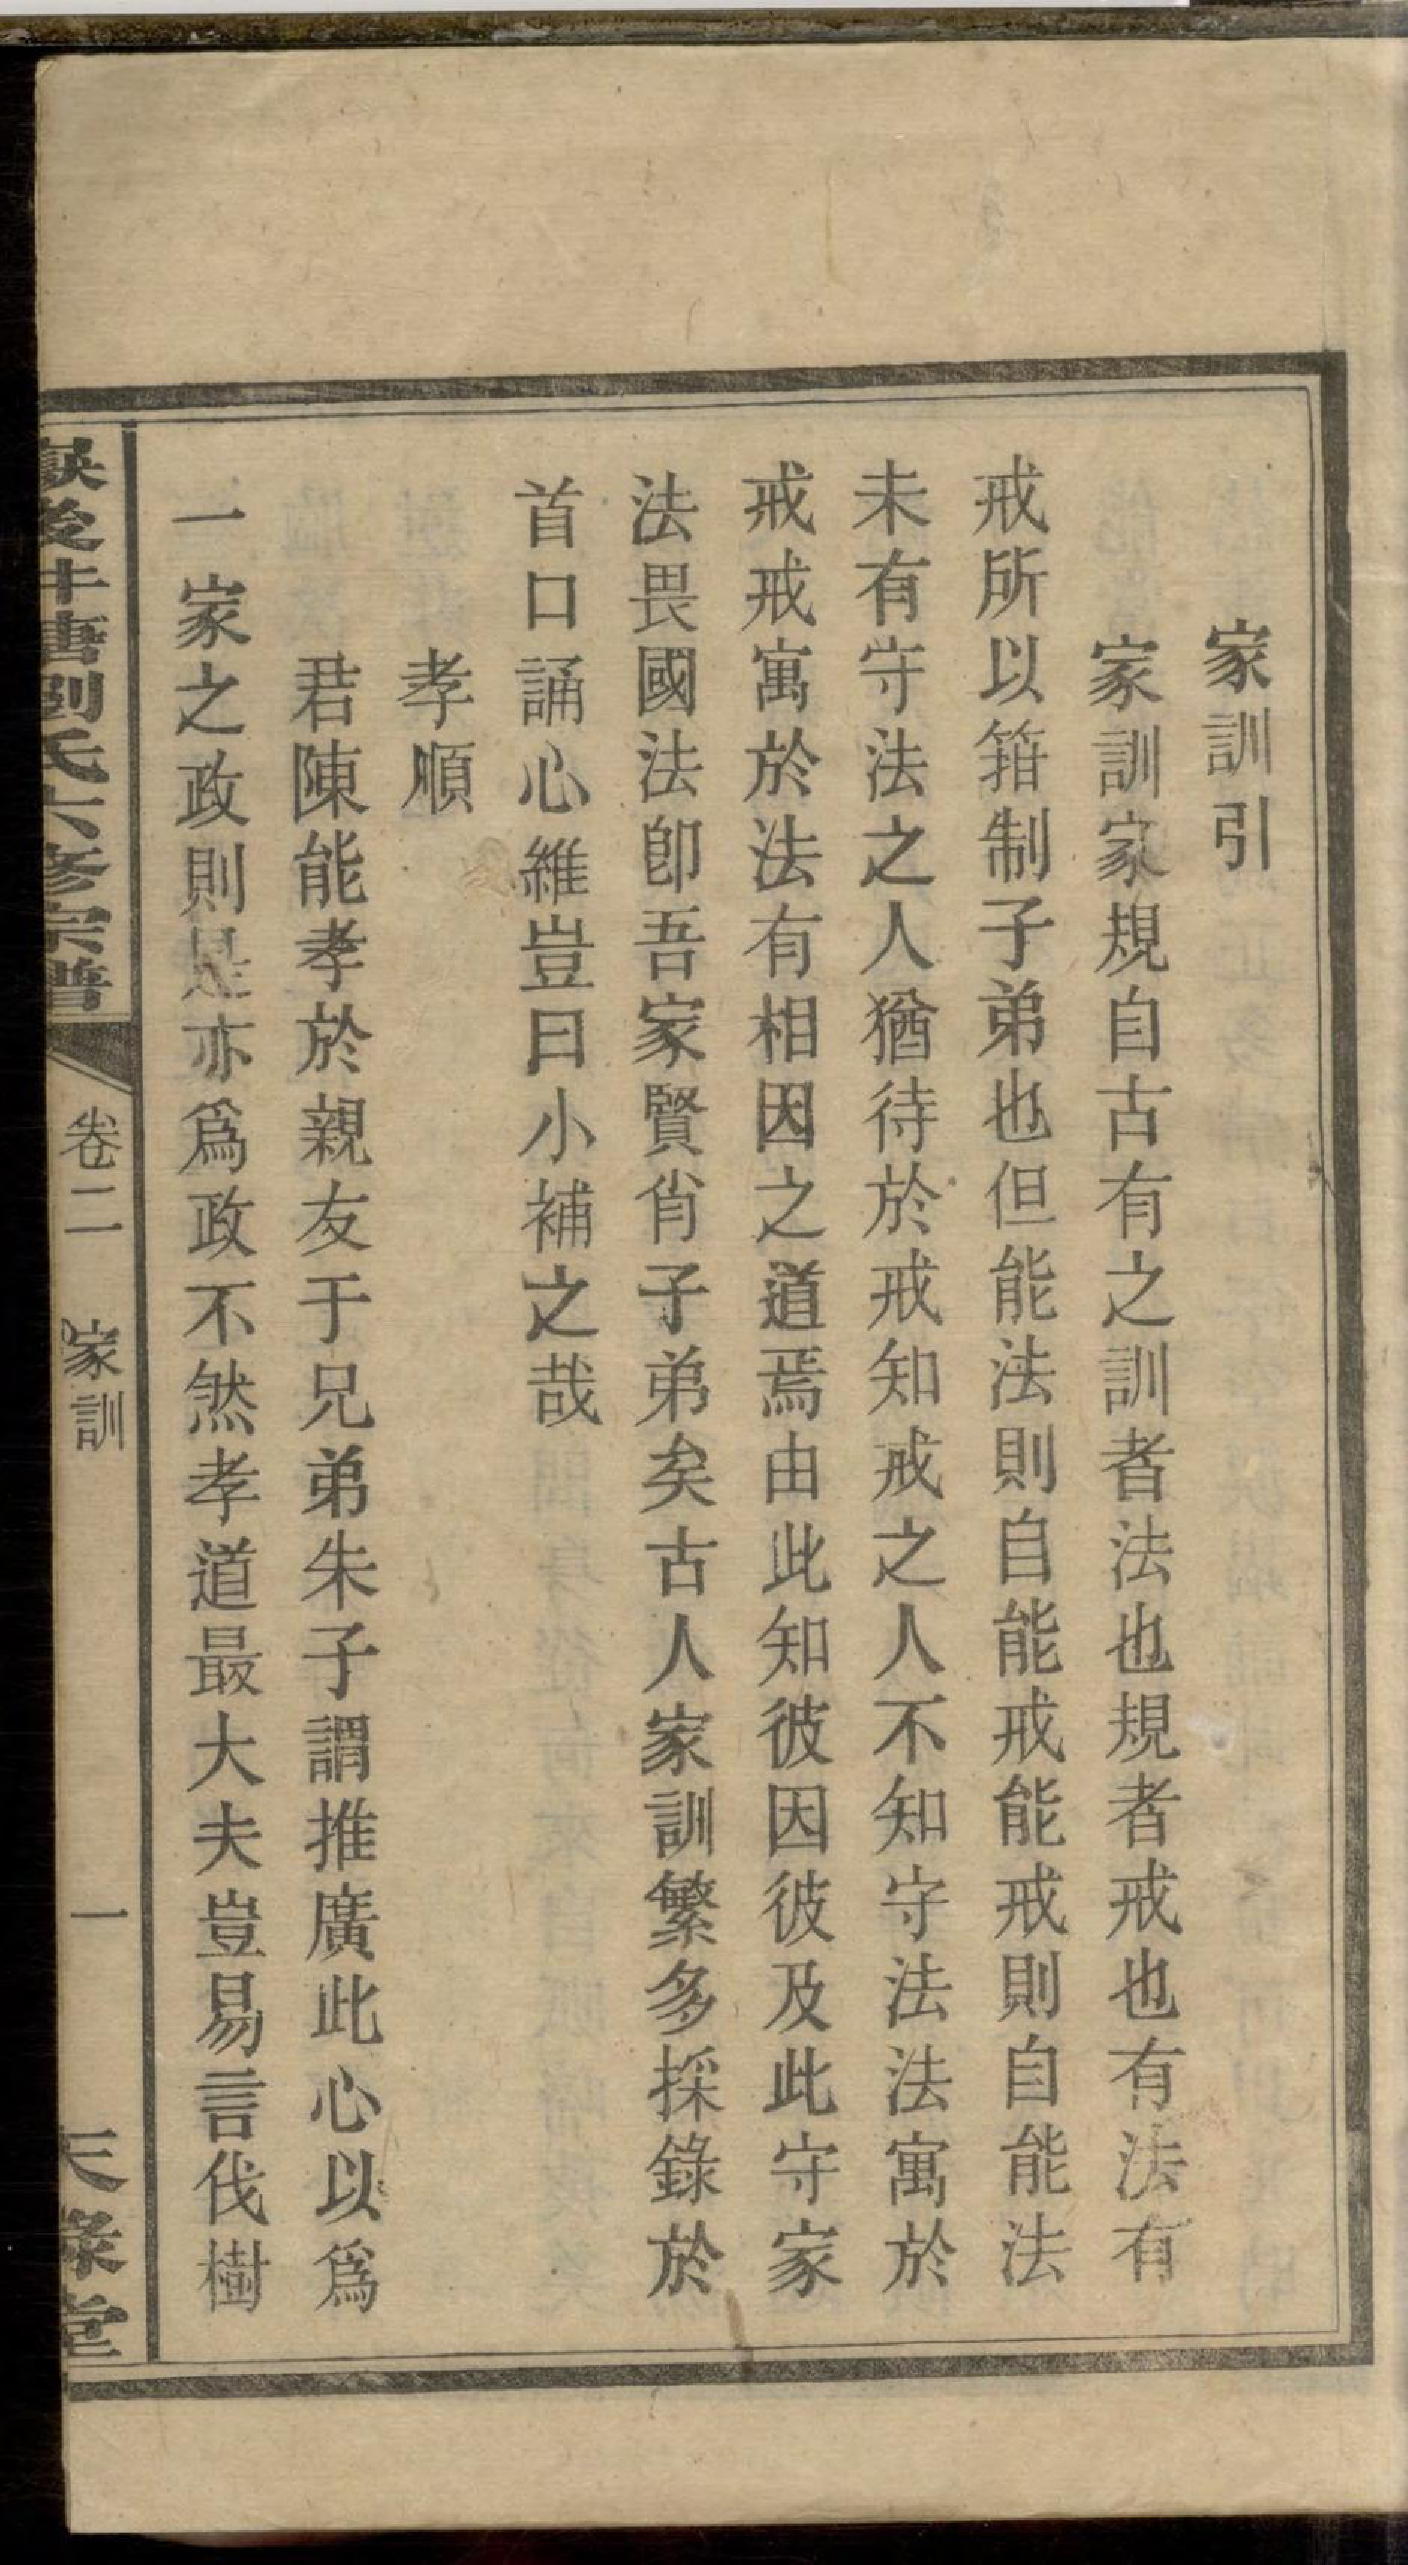 家訓引
家訓家規自古有之訓者法也規者戒也有法有
戒所以箝制子弟也但能法則自能戒能戒則自能法
未有守法之人猶待於戒知戒之人不知守法法寓於
戒戒寓於法有相因之道焉由此知彼因彼及此守家
法畏國法卽吾家賢肖子弟矣古人家訓繁多採錄於
首口誦心維豈曰小補之哉
孝順
君陳能孝於親友于兄弟朱子謂推廣此心以爲
一家之政則是亦爲政不然孝道最大夫豈易言伐樹
後牛唐劉氏六修宗譜
卷二 家訓
一
天祿堂